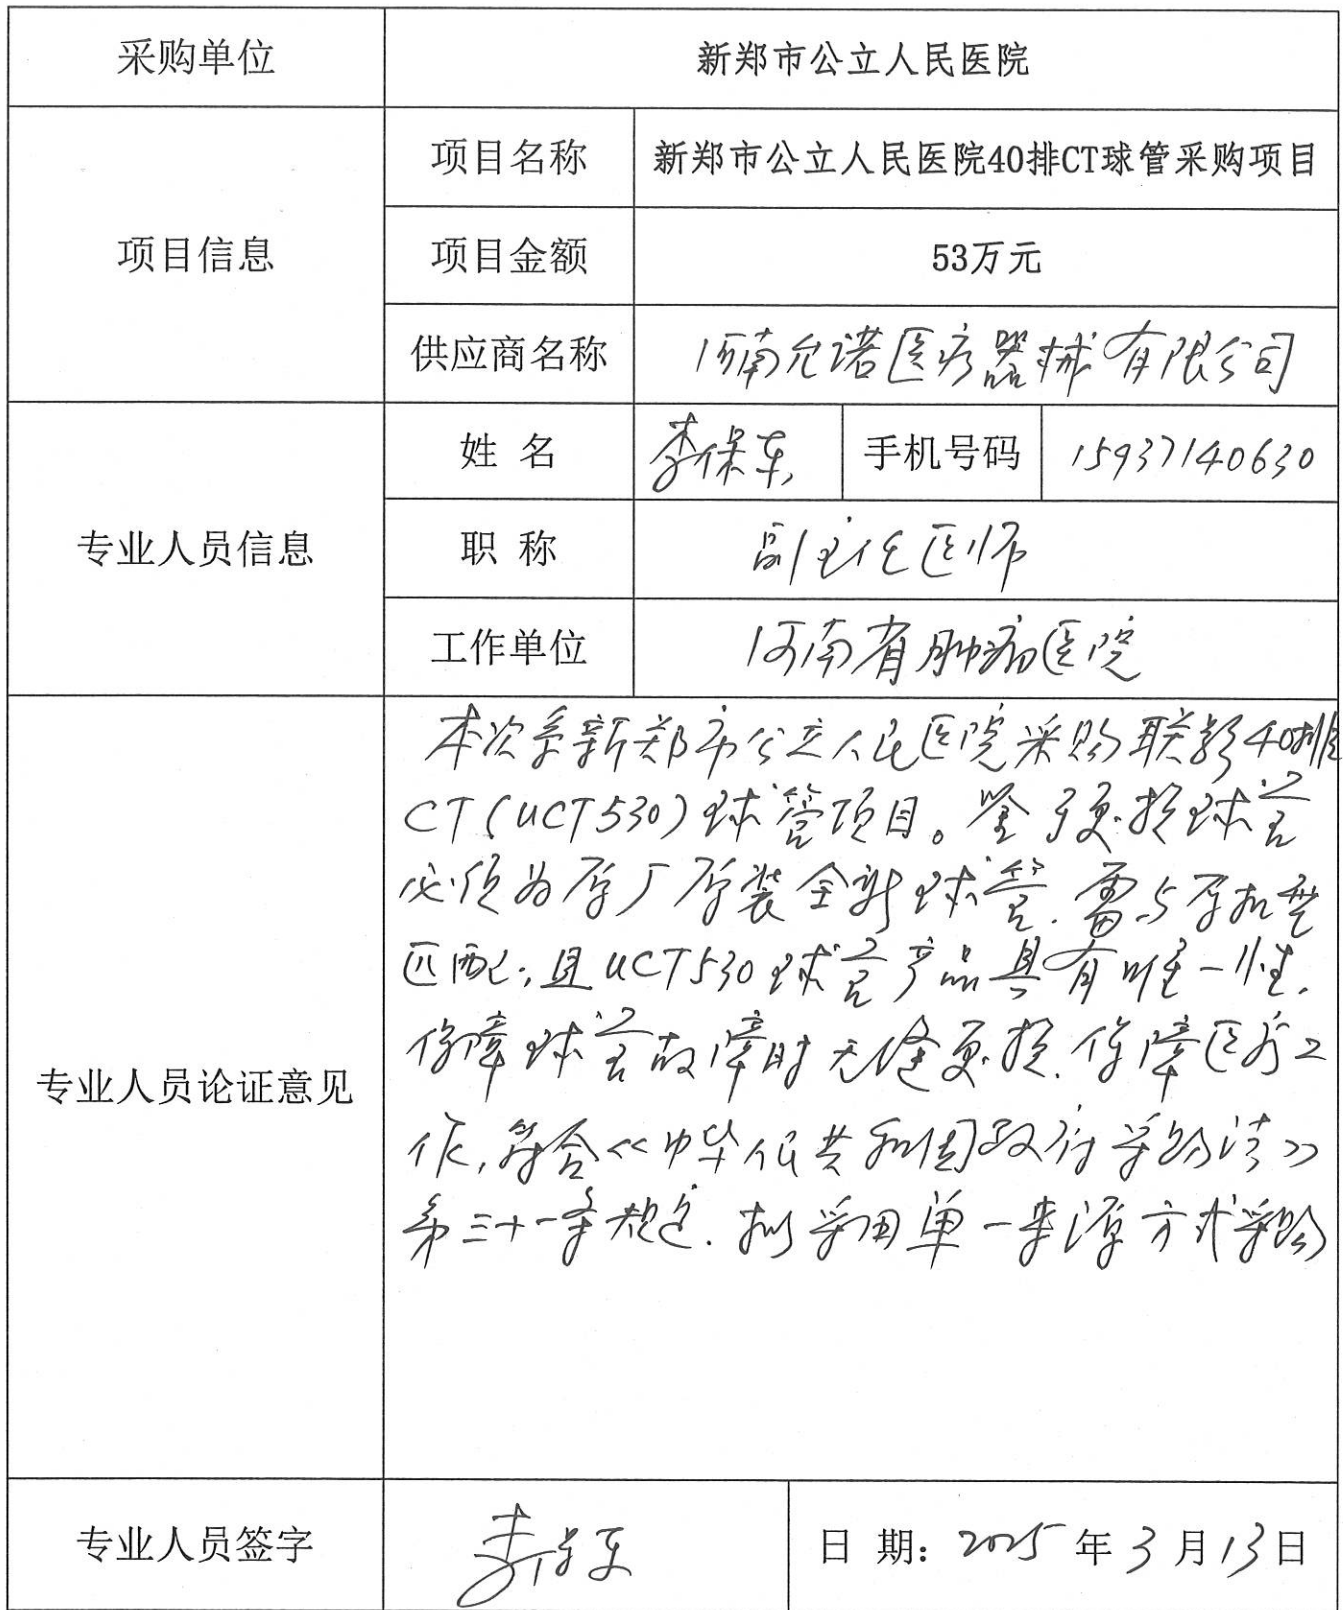 采购单位 新郑市公立人民医院
项目信息
项目名称 新郑市公立人民医院40排CT球管采购项目
项目金额 53万元
供应商名称 河南允诺医疗器械有限公司
专业人员信息
姓名 李保东 手机号码 15937140630
职称 副主任医师
工作单位 河南省肿瘤医院
专业人员论证意见
本次系新郑市公立人民医院采购联影40排
CT(UCT530)球管项目。鉴于更换球管
必须为原厂原装全新球管.需与原机型
匹配;且UCT530球管产品具有唯一性.
保障球管故障时无缝更换.保障医疗工
作,符合《中华人民共和国政府采购法》
第三十一条规定.拟采用单一来源方式采购
专业人员签字 李保东 日期: 2025年3月13日